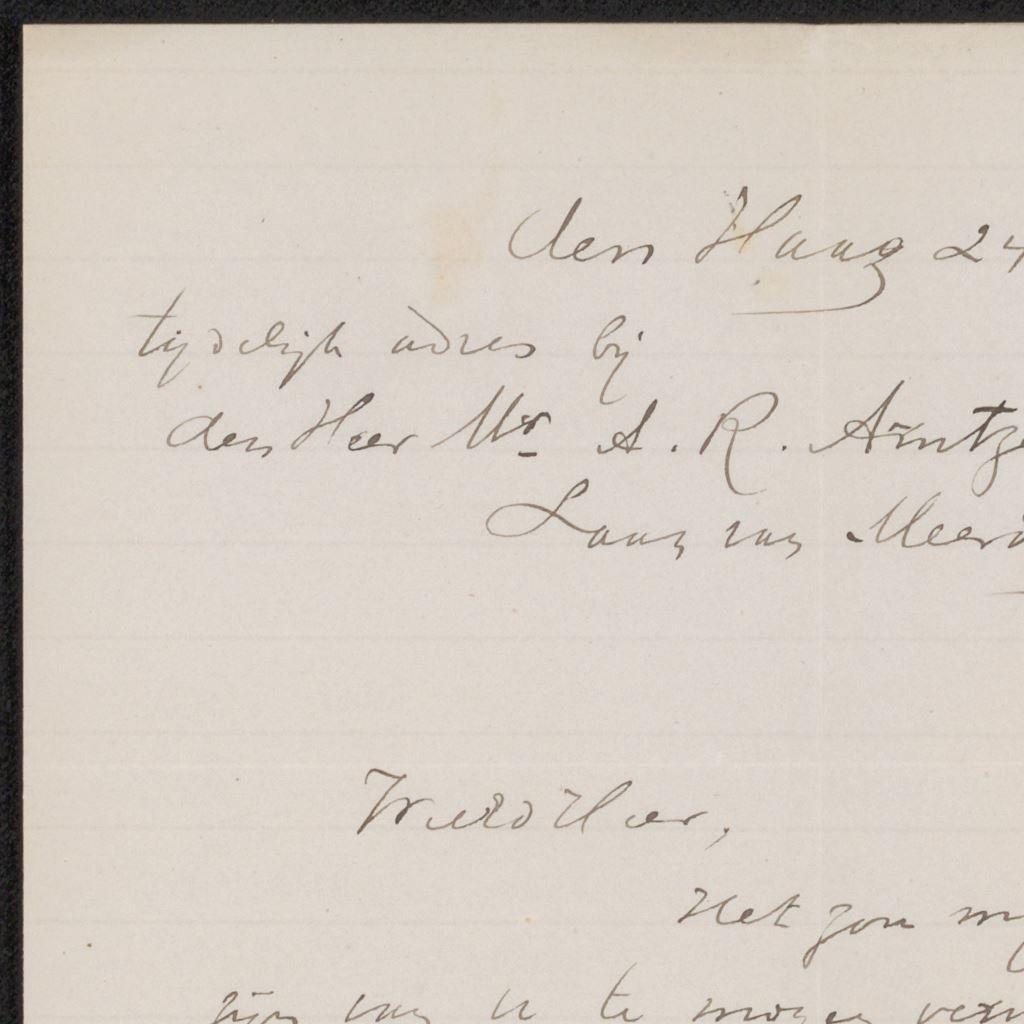 den Haag 24
tijdelijk adres bij
den Heer Mr A. R. Arntze
Laan van Meerd
Waarde Heer,
Het zou mij
zijn van u te mogen vern